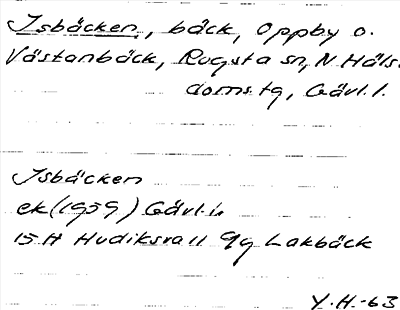 Isbäcken, bäck, Oppby o.
Västanbäck, Rogsta sn, N. Häls.
doms.tg, Gävl. l.
Isbäcken
ek (1959) Gävl. l.
15 H Hudiksvall 9g Lakbäck
Y. H. -63